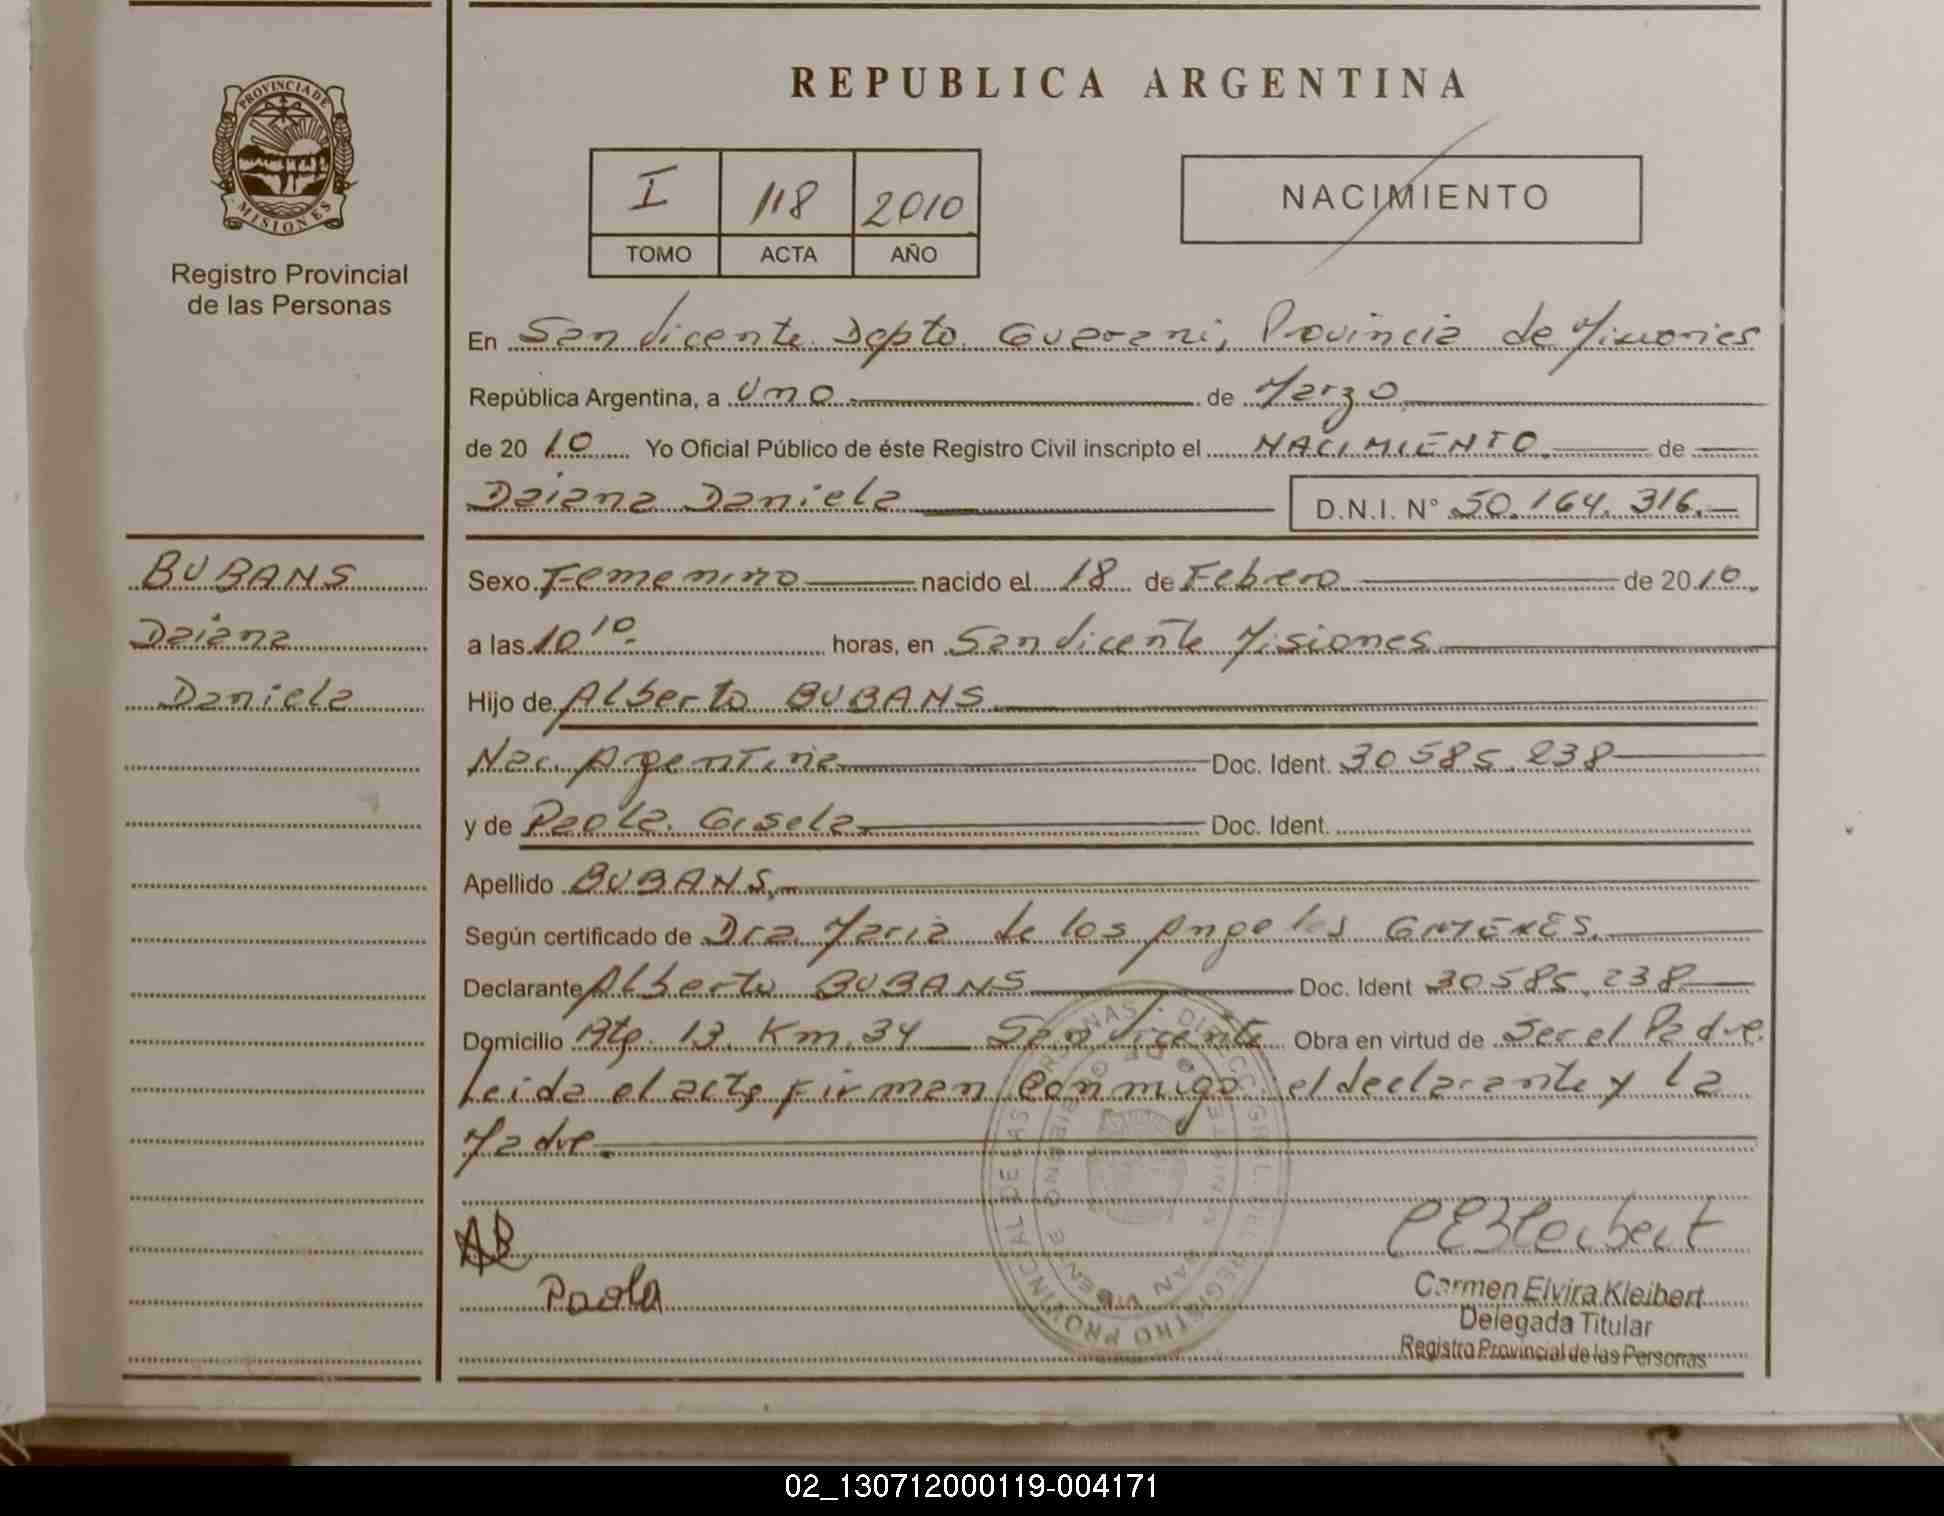 REPUBLICA ARGENTINA
PROVINCIA DE
MISIONES
Registro Provincial
de las Personas
I 118 2010
TOMO ACTA AÑO
NACIMIENTO
En San Vicente Depto. Guarani, Provincia de Misiones
República Argentina, a Uno de Marzo
de 2010 Yo Oficial Público de éste Registro Civil inscripto el NACIMIENTO de
Daiana Daniela D.N.I. N° 50.164.316.
BUBANS
Daiana
Daniela
Sexo Femenino nacido el 18 de Febrero de 2010
a las 10 10 horas, en San Vicente Misiones
Hijo de Alberto BUBANS
Nac. Argentina Doc. Ident. 30585.238
y de Paola Gisela Doc. Ident.
Apellido BUBANS,
Según certificado de Dra. Maria de los Angeles
Declarante Alberto BUBANS Doc. Ident 30585.238
Domicilio Km. 34 San Vicente Obra en virtud de Ser el Padre.
Leida el acta firman conmigo el declarante y la
Madre.
AB
Paola
Carmen Elvira Kleibert
Delegada Titular
Registro Provincial de las Personas
02_130712000119-004171